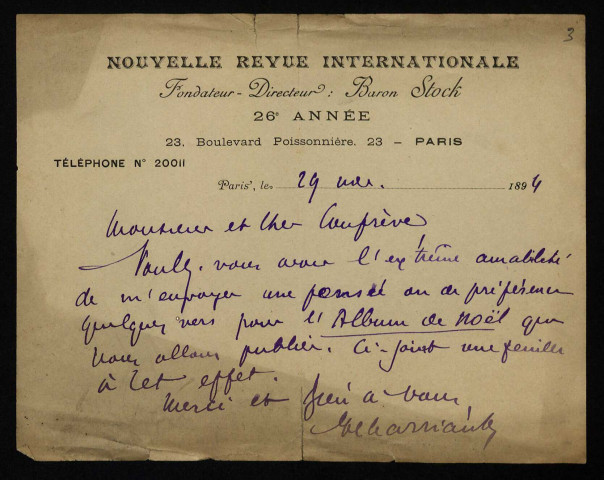 3
NOUVELLE REVUE INTERNATIONALE
Fondateur-Directeur: Baron Stock
26e ANNÉE
23, Boulevard Poissonnière, 23 - PARIS
TÉLÉPHONE N° 20011
Paris, le 29 nov. 1894
Monsieur et Cher Confrère
Voulez-vous avoir l'extrême amabilité
de m'envoyer une pensée ou de préférence
quelques vers pour l'Album de Noël que
nous allons publier. Ci-joint une feuille
à cet effet.
Merci et bien à vous